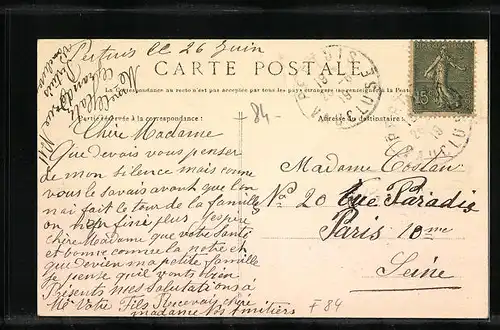 Pertuis le 26 Juin
CARTE POSTALE
La Correspondance au recto n'est pas acceptée par tous les pays étrangers (se renseigner à la Poste)
Partie réservée à la correspondance :
Adresse du destinataire :
84-
15
Chère Madame
Que devais vous penser
de mon silence mais comme
vous le savais avant que l'on
n'ai fait le tour de la famille
on n'en fini plus. J'espère
chère Madame que votre Santé
et bonne comme la notre et
que devien ma petite famille
Je pense qu'il vont bien
Présents mes Salutations à
Mr Votre Fils Recevay chère
madame Nos
Madame Costan
No 20 Rue Paradis
Paris 10me
Seine
F 84